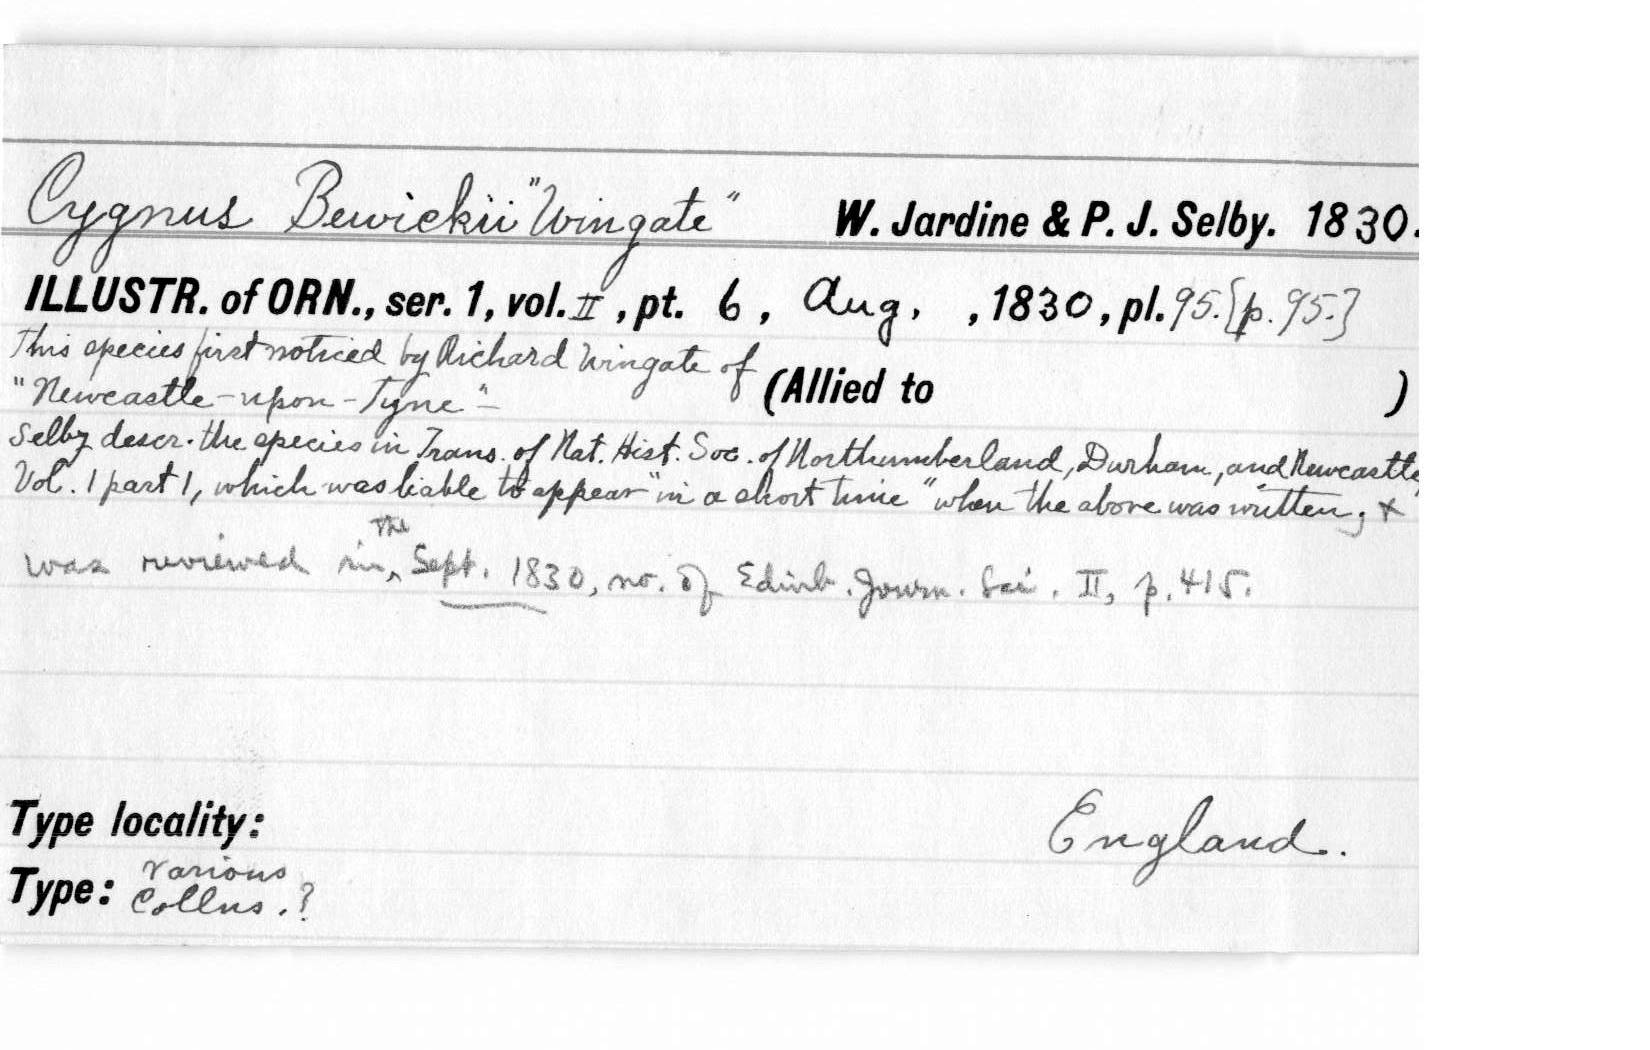 Cygnus Bewickii "Wingate" W. Jardine & P. J. Selby. 1830.
ILLUSTR. of ORN., ser. 1, vol. II, pt. 6, Aug., 1830, pl. 95. [p. 95.]
This species first noticed by Richard Wingate of
"Newcastle-upon-Tyne"- (Allied to )
Selby descr. the species in Trans. of Nat. Hist. Soc. of Northumberland, Durham, and Newcastle,
Vol. 1 part 1, which was liable to appear "in a short time" when the above was written; &
was reviewed in the Sept. 1830, no. of Edinb. Journ. Sci. II, p. 415.
Type locality: England.
Type: various
Collns.?